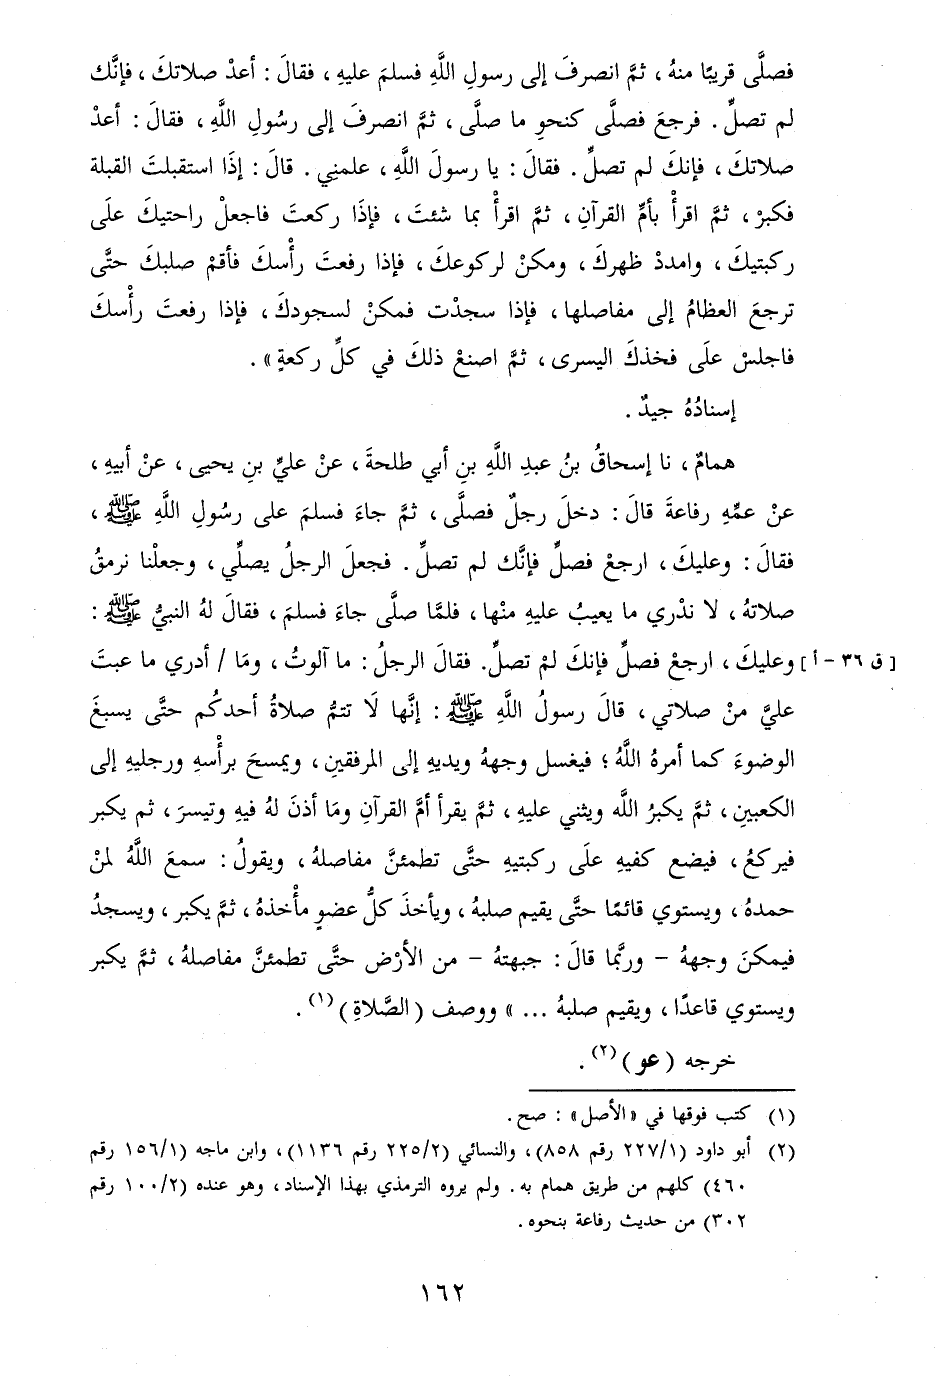 فصلَّى قريبًا منهُ ، ثمَّ انصرفَ إلى رسولِ اللَّهِ فسلمَ عليهِ ، فقالَ : أعدْ صلاتكَ ، فإنَّك
لم تصلِّ . فرجعَ فصلَّى كنحوِ ما صلَّى ، ثمَّ انصرفَ إلى رسُولِ اللَّهِ ، فقالَ : أعدْ
صلاتكَ ، فإنكَ لم تصلِّ . فقالَ : يا رسولَ اللَّهِ ، علمنِي . قالَ : إذَا استقبلتَ القبلة
فكبرْ ، ثمَّ اقرأْ بأمِّ القرآنِ ، ثمَّ اقرأْ بما شئتَ ، فإذَا ركعتَ فاجعلْ راحتيكَ علَى
ركبتيكَ ، وامددْ ظهركَ ، ومكنْ لركوعكَ ، فإذا رفعتَ رأْسكَ فأقمْ صلبكَ حتَّى
ترجعَ العظامُ إلى مفاصلها ، فإذا سجدْت فمكنْ لسجودكَ ، فإذا رفعتَ رأْسكَ
فاجلسْ علَى فخذكَ اليسرى ، ثمَّ اصنعْ ذلكَ في كلِّ ركعةٍ » .
إسنادُهُ جيدٌ .
همامٌ ، نا إسحاقُ بنُ عبدِ اللَّهِ بنِ أبي طلحةَ ، عنْ عليِّ بنِ يحيى ، عنْ أبيهِ ،
عنْ عمِّهِ رفاعةَ قالَ : دخلَ رجلٌ فصلَّى ، ثمَّ جاءَ فسلمَ على رسُولِ اللَّهِ ﷺ ،
فقالَ : وعليكَ ، ارجعْ فصلِّ فإنَّك لم تصلِّ . فجعلَ الرجلُ يصلِّي ، وجعلْنا نرمقُ
صلاتهُ ، لا ندْري ما يعيبُ عليهِ منْها ، فلمَّا صلَّى جاءَ فسلمَ ، فقالَ لهُ النبيُّ ﷺ :
[ ق ٣٦ - أ ] وعليكَ ، ارجعْ فصلِّ فإنكَ لمْ تصلِّ. فقالَ الرجلُ : ما آلوتُ ، ومَا / أدري ما عبتَ
عليَّ منْ صلاتي ، قالَ رسولُ اللَّهِ ﷺ : إنَّها لَا تتمُّ صلاةُ أحدكُم حتَّى يسبغَ
الوضوءَ كما أمرهُ اللَّهُ ؛ فيغسل وجههُ ويديهِ إلى المرفقينِ ، ويمسحَ برأْسهِ ورجليهِ إلى
الكعبينِ ، ثمَّ يكبرُ اللَّه ويثني عليهِ ، ثمَّ يقرأ أمَّ القرآنِ ومَا أذنَ لهُ فيهِ وتيسرَ ، ثم يكبر
فيركعُ ، فيضع كفيهِ علَى ركبتيهِ حتَّى تطمئنَّ مفاصلهُ ، ويقولُ : سمعَ اللَّهُ لمنْ
حمدهُ ، ويستوي قائمًا حتَّى يقيم صلبهُ ، ويأخذَ كلُّ عضوٍ مأْخذهُ ، ثمَّ يكبر ، ويسجدُ
فيمكنَ وجههُ - وربَّما قالَ : جبهتهُ - من الأرْض حتَّى تطمئنَّ مفاصلهُ ، ثمَّ يكبر
ويستوي قاعدًا ، ويقيم صلبهُ ... » ووصف ( الصَّلاةِ ) (١) .
خرجه ( عو ) (٢) .
(١) كتب فوقها في « الأصل » : صح .
(٢) أبو داود (٢٢٧/١ رقم ٨٥٨)، والنسائي (٢٢٥/٢ رقم ١١٣٦)، وابن ماجه (١٥٦/١ رقم
٤٦٠) كلهم من طريق همام به . ولم يروه الترمذي بهذا الإسناد ، وهو عنده (١٠٠/٢ رقم
٣٠٢) من حديث رفاعة بنحوه .
١٦٢